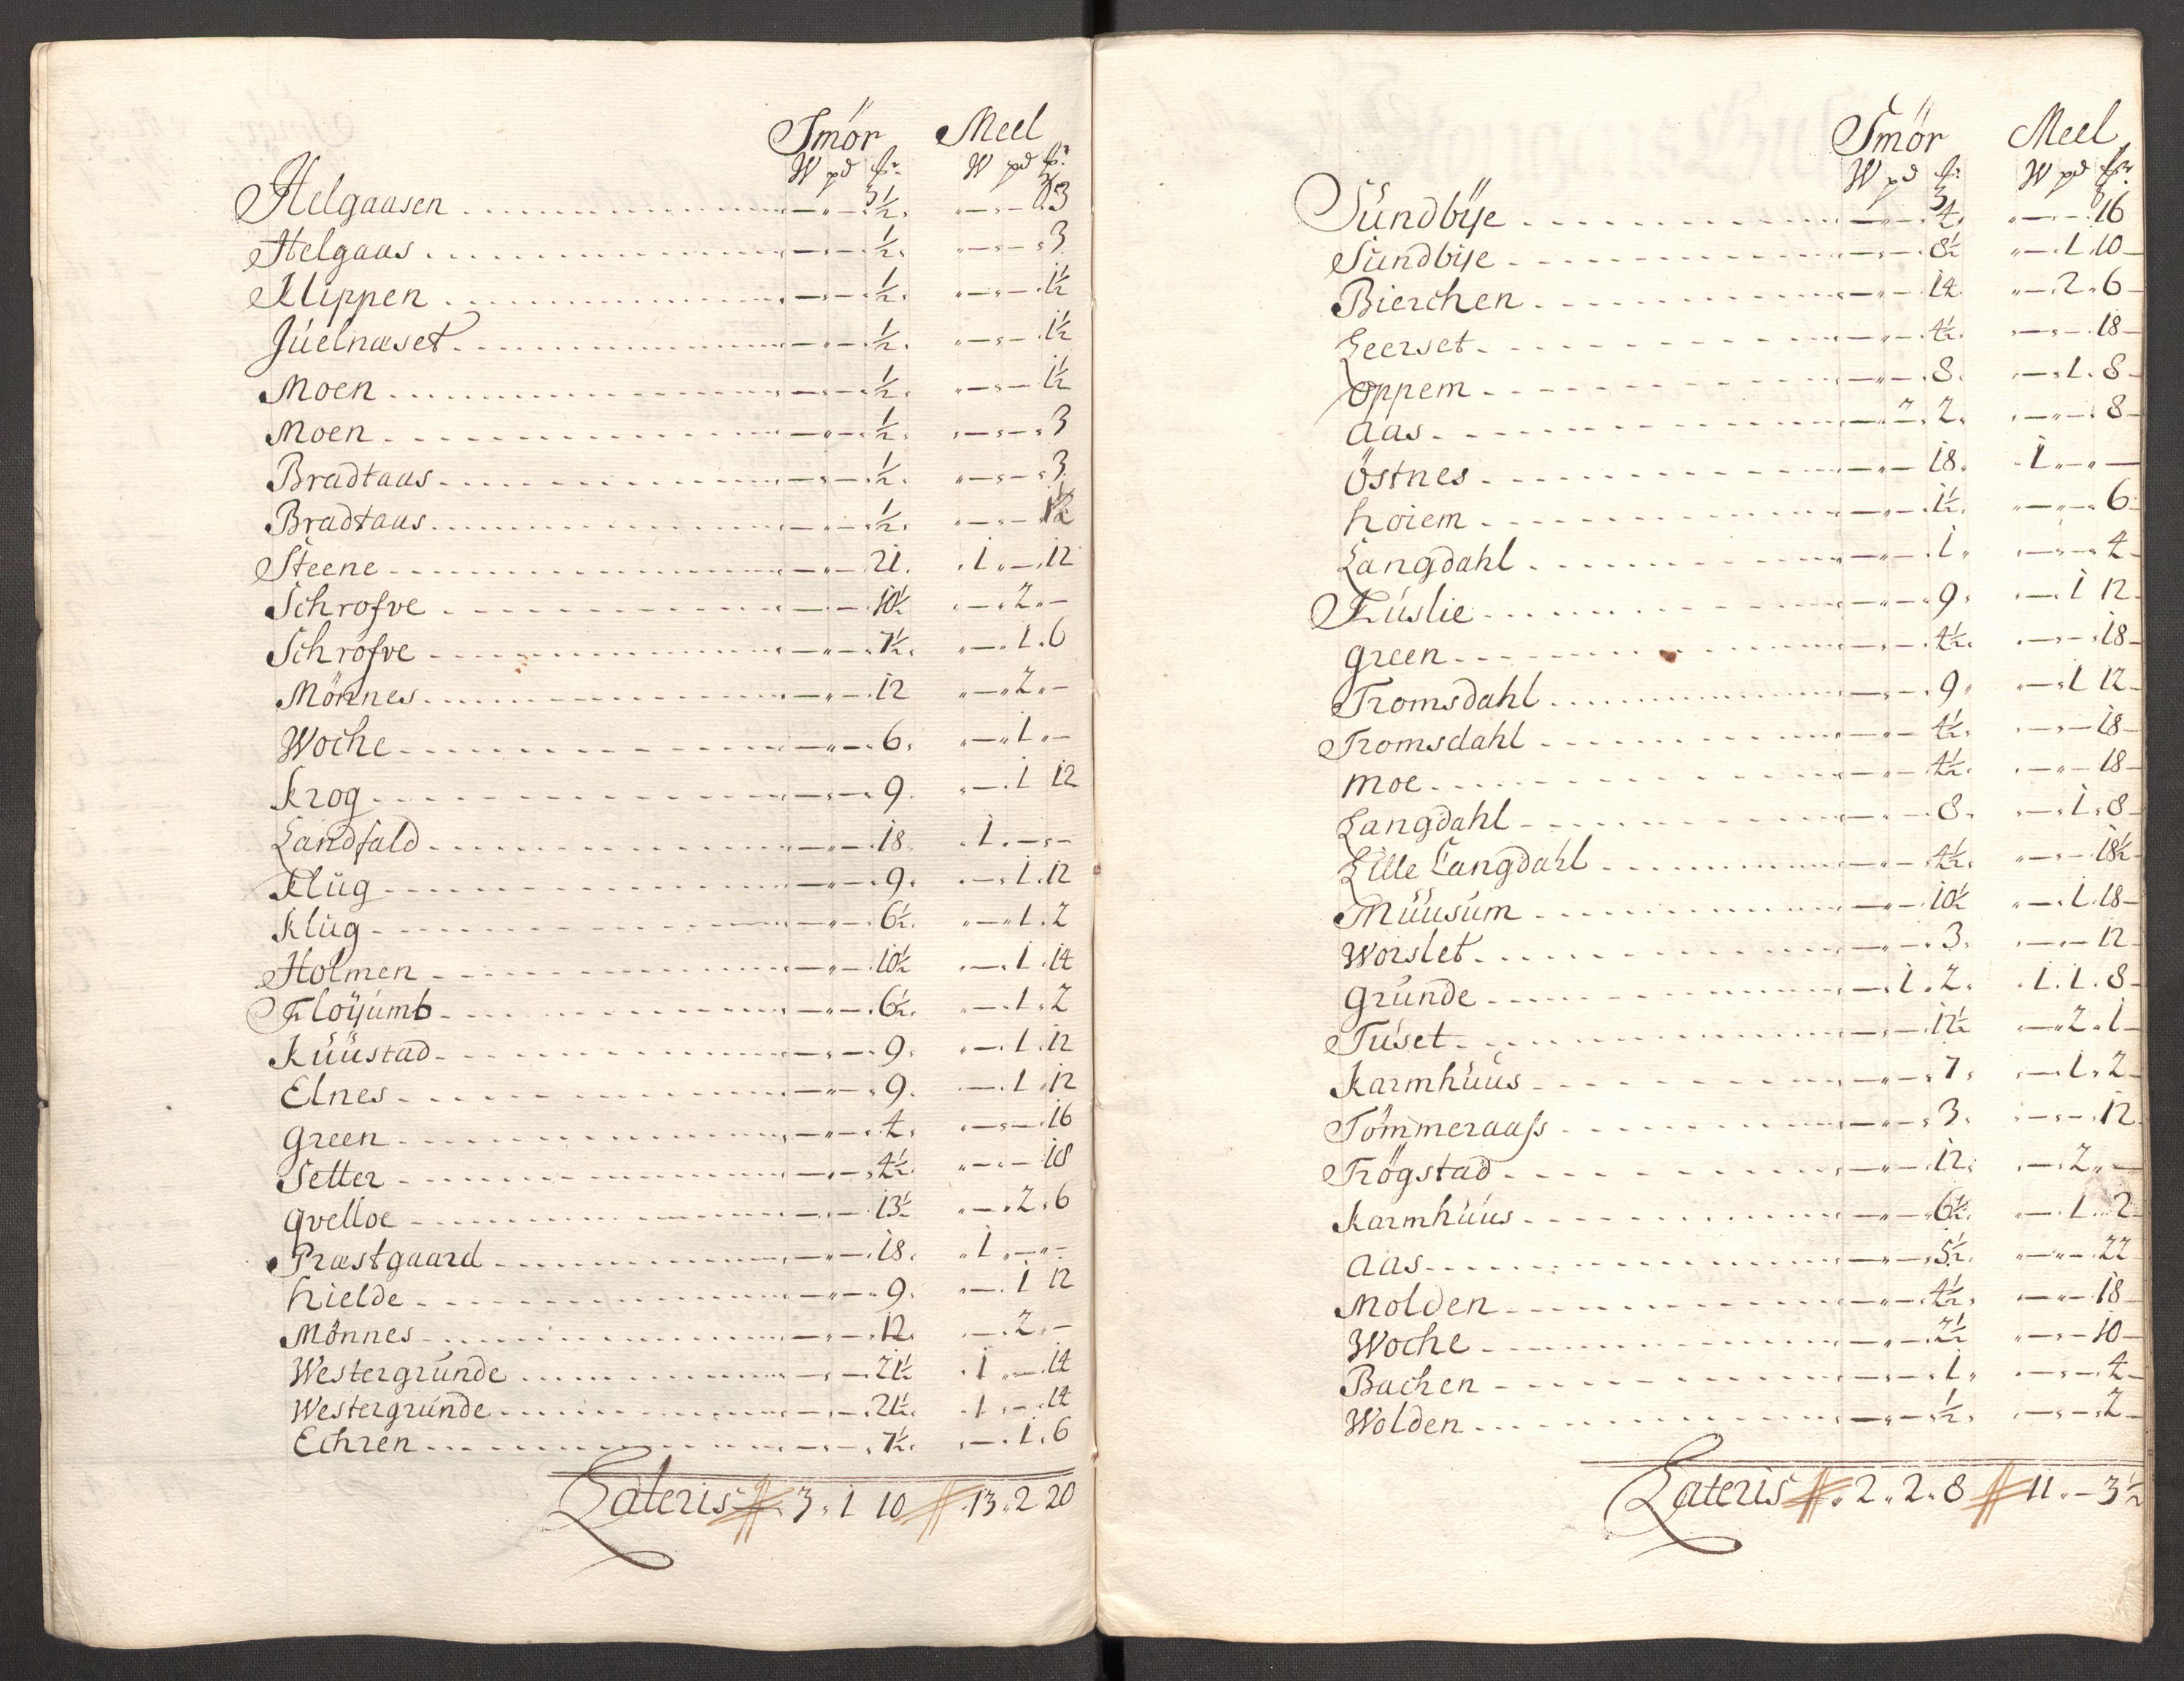 Smör Meel
W pd W pd
Helgaasen ½ 3
Helgaas ½ 3
Klippen ½ 1½
Juelnæset ½ 1½
Moen ½ 1½
Moen ½ 3
Bradtaas ½ 3
Bradtaas ½ 1½
Steene 21 1 - 12
Schrofve 10½ 2 -
Schrofve 7½ 1 6
Mönnes 12 2 -
Woche 6 1 -
Krog 9 1 12
Landfald 18 1 - -
Klug 9 1 12
Klug 6½ 1 2
Holmen 10½ 1 14
Floÿumb 6½ 1 2
Kuustad 9 1 12
Elnes 9 1 12
Green 4 16
Setter 4½ 18
Qvelloe 13½ 2 6
Præstgaard 18 1 - -
Hielde 9 1 12
Mönnes 12 2 -
Westergrunde 21½ 1 - 14
Westergrunde 21½ 1 - 14
Echren 7½ 1 6
Lateris 3 1 10 13 2 20
Smör Meel
W pd W pd
Sundbÿe 4 16
Sundbÿe 8½ 1 10
Bierchen 14 2 6
Leerset 4½ 18
Oppem 8 1 8
Aas 2 8
Östnes 18 1 - -
Hoiem 1½ 6
Langdahl 1 4
Fuslie 9 1 12
Green 4½ 18
Tromsdahl 9 1 12
Tromsdahl 4½ 18
Moe 4½ 18
Langdahl 8 1 8
Lille Langdahl 4½ 18½
Muusum 10½ 1 18
Worslet 3 12
Grunde 1 2 1 1 8
Tuset 12½ 2 1
Karmhuus 7 1 2
Tömmeraass 3 12
Trögstad 12 2 -
Karmhuus 6½ 1 2
Aas 5½ 22
Molden 4½ 18
Woche 2½ 10
Bachen 1 4
Wolden ½ 2
Lateris 2 2 8 11 - 3½